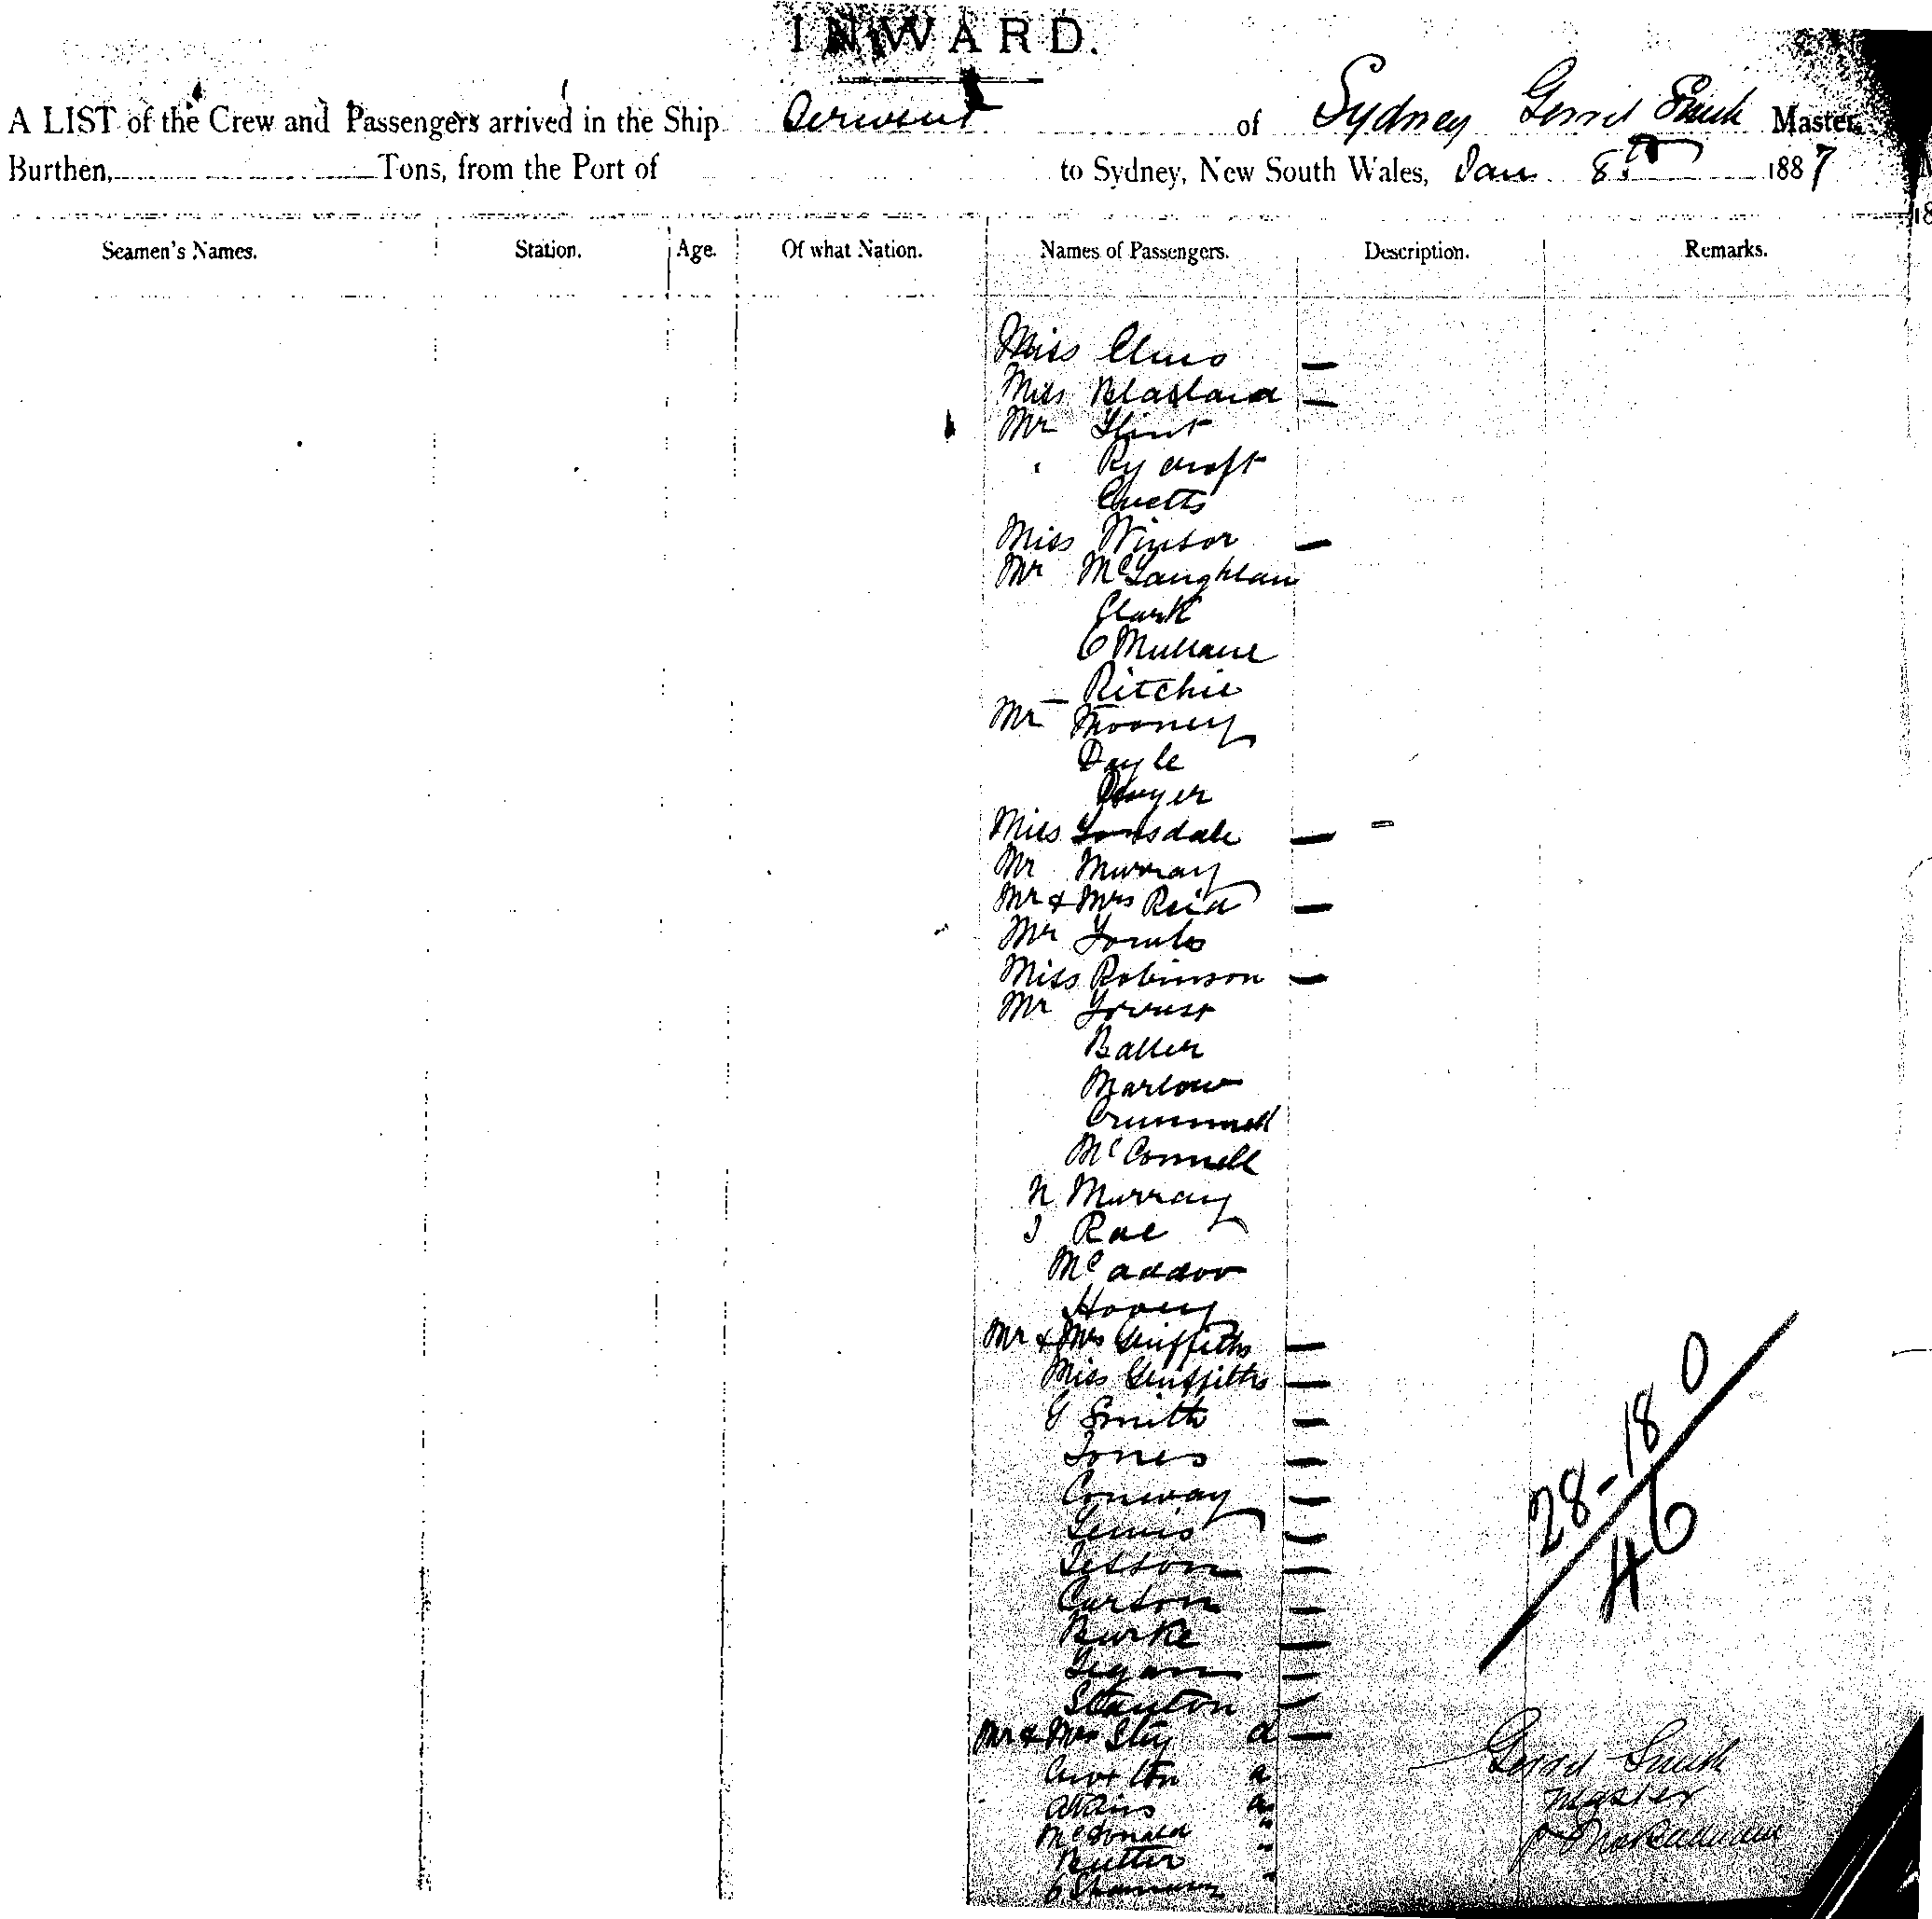 INWARD.
A LIST of the Crew and Passengers arrived in the Ship Derwent of Sydney Gerrd Smith Master,
Burthen, Tons, from the Port of to Sydney, New South Wales, Jan 8th 1887
Seamen's Names. Station. Age. Of what Nation. Names of Passengers. Description. Remarks.
Miss
Miss Blaxland —
Mr Flint
" Rycroft
Miss Winsor —
Mr McLaughlan
Clark
O Mullane
Ritchie
Mr Mooney
Doyle
Dwyer
Miss Lonsdale —
Mr Murray
Mr & Mrs Reid —
Mr
Miss Robinson —
Mr
Marlow
McConnell
N Murray
J Rae
Mr & Mrs Griffiths —
Miss Griffiths —
G Smith —
Jones —
Conway —
Lewis —
Curson —
Burke —
Stanton —
Mr & Mrs
Croxton
Atkins
McDonald "
Butter "
28-18 0
46
Gerrd Smith
Master